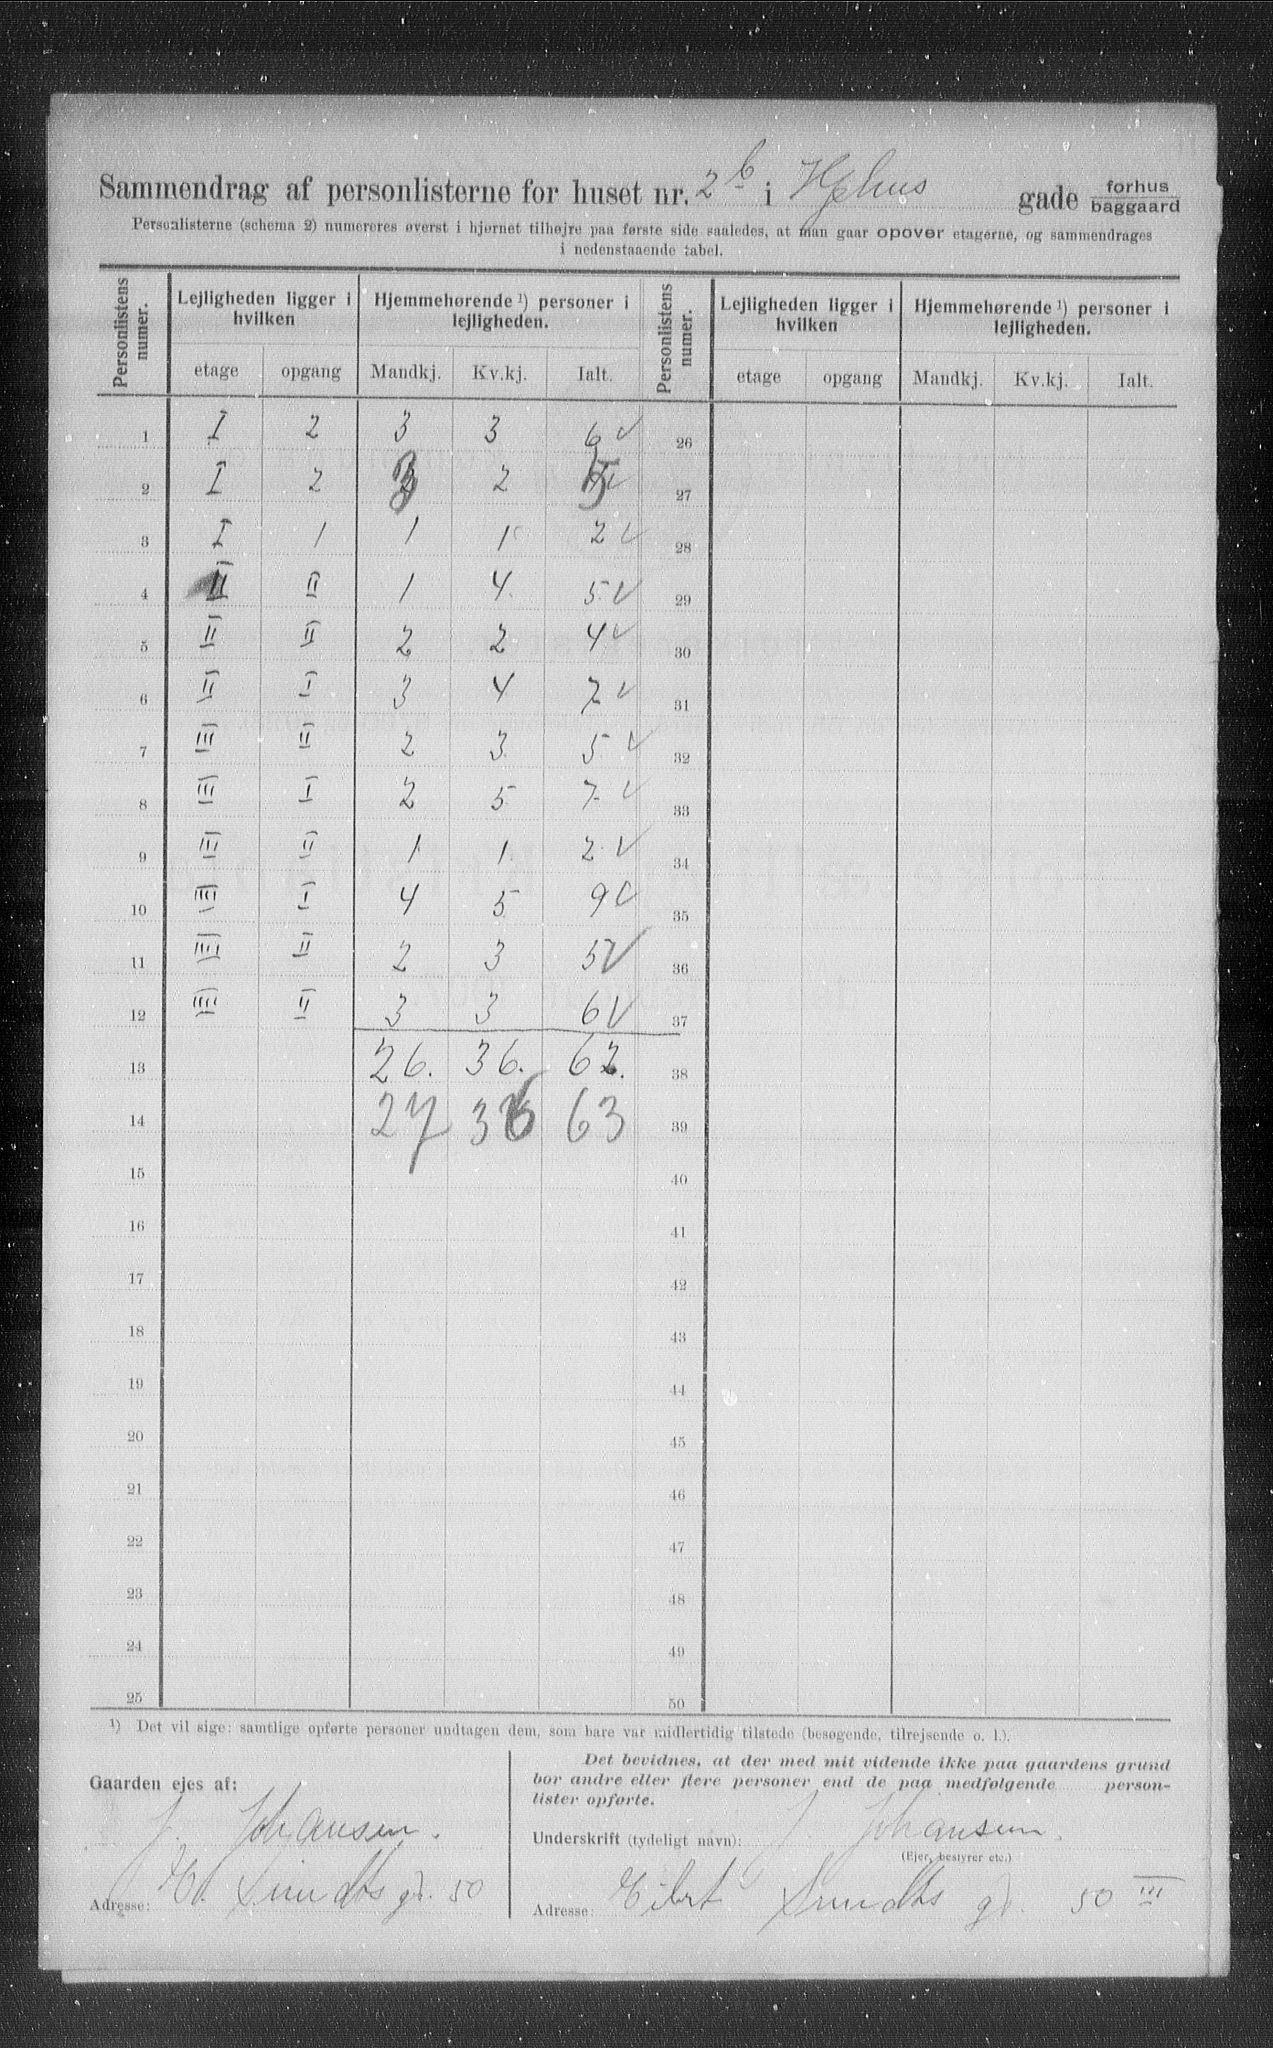 Sammendrag af personlisterne for huset nr. 2 b i Hjelms gade forhus baggaard
Personlisterne (schema 2) numereres øverst i hjørnet tilhøjre paa første side saaledes, at man gaar opover etagerne, og sammendrages
i nedenstaaende tabel.
Personlistens numer. Lejligheden ligger i hvilken Hjemmehørende ¹) personer i lejligheden. Personlistens numer. Lejligheden ligger i hvilken Hjemmehørende ¹) personer i lejligheden.
etage opgang Mandkj. Kv.kj. Ialt. etage opgang Mandkj. Kv.kj. Ialt.
1 I 2 3 3 6 √ 26
2 I 2 3 2 5 √ 27
3 I 1 1 1 2 √ 28
4 II II 1 4 5 √ 29
5 II II 2 2 4 √ 30
6 II I 3 4 7 √ 31
7 III II 2 3 5 √ 32
8 III I 2 5 7 √ 33
9 III II 1 1 2 √ 34
10 IIII I 4 5 9 √ 35
11 IIII II 2 3 5 √ 36
12 IIII II 3 3 6 √ 37
13 26. 36. 62. 38
14 27 36 63 39
15 40
16 41
17 42
18 43
19 44
20 45
21 46
22 47
23 48
24 49
25 50
¹) Det vil sige: samtlige opførte personer undtagen dem, som bare var midlertidig tilstede (besøgende, tilrejsende o. l.).
Gaarden ejes af:
J. Johansen.
Adresse: Eil. Sundts gd. 50
Det bevidnes, at der med mit vidende ikke paa gaardens grund
bor andre eller flere personer end de paa medfølgende person-
lister opførte.
Underskrift (tydeligt navn): J. Johansen.
(Ejer, bestyrer etc.)
Adresse: Eilert Sundts gd. 50 III